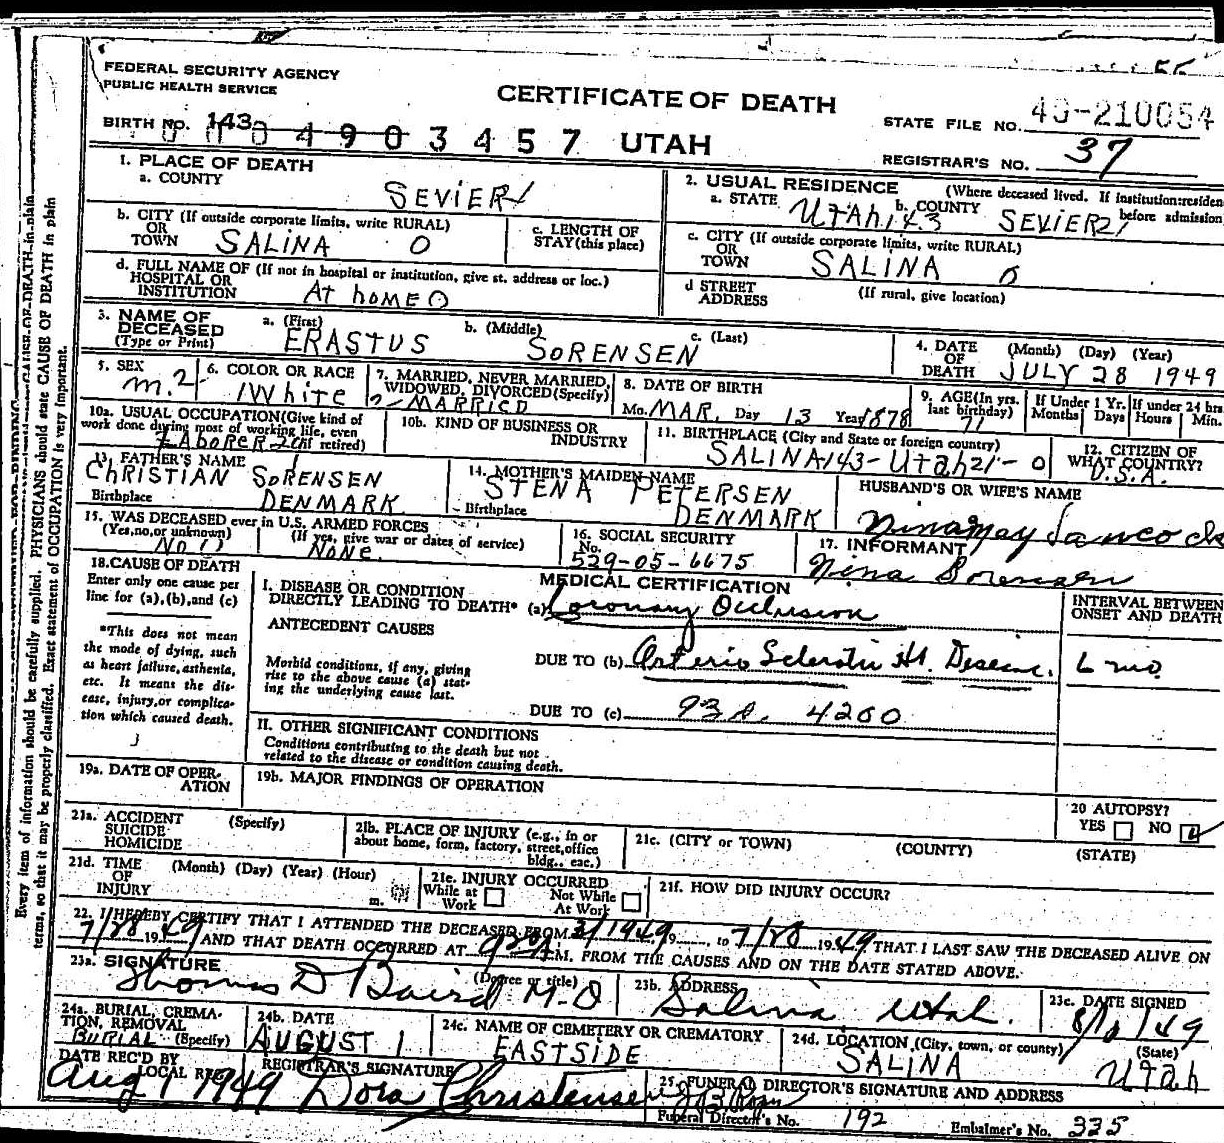 FEDERAL SECURITY AGENCY
PUBLIC HEALTH SERVICE
CERTIFICATE OF DEATH
STATE FILE NO. 49-210054
BIRTH NO. 143
4903457 UTAH
REGISTRAR'S NO. 37
1. PLACE OF DEATH
a. COUNTY
SEVIER
2. USUAL RESIDENCE (Where deceased lived. If institution:residen
before admission
a. STATE UTAH 143 b. COUNTY SEVIER 21
b. CITY (If outside corporate limits, write RURAL)
OR
TOWN SALINA 0
c. LENGTH OF
STAY (this place)
c. CITY (If outside corporate limits, write RURAL)
OR
TOWN SALINA 0
d. FULL NAME OF (If not in hospital or institution, give st. address or loc.)
HOSPITAL OR
INSTITUTION At home 0
d STREET
ADDRESS
(If rural, give location)
3. NAME OF
DECEASED
(Type or Print)
a. (First) b. (Middle) c. (Last)
ERASTUS SORENSEN
4. DATE
OF
DEATH
(Month) (Day) (Year)
JULY 28 1949
5. SEX
m. 2
6. COLOR OR RACE
White
7. MARRIED, NEVER MARRIED,
WIDOWED, DIVORCED (Specify)
MARRIED
8. DATE OF BIRTH
Mo. MAR. Day 13 Year 1878
9. AGE (In yrs.
last birthday)
71
If Under 1 Yr.
Months Days
If under 24 hrs
Hours Min.
10a. USUAL OCCUPATION (Give kind of
work done during most of working life, even
if retired)
LABORER
10b. KIND OF BUSINESS OR
INDUSTRY
11. BIRTHPLACE (City and State or foreign country)
SALINA-143-Utah 21-0
12. CITIZEN OF
WHAT COUNTRY?
U.S.A.
13. FATHER'S NAME
CHRISTIAN SORENSEN
Birthplace DENMARK
14. MOTHER'S MAIDEN NAME
STENA PETERSEN
Birthplace DENMARK
HUSBAND'S OR WIFE'S NAME
Nina May
15. WAS DECEASED ever in U.S. ARMED FORCES
(Yes, no, or unknown) (If yes, give war or dates of service)
No None
16. SOCIAL SECURITY
No.
529-05-6675
17. INFORMANT
Nina Sorensen
18. CAUSE OF DEATH
Enter only one cause per
line for (a), (b), and (c)
*This does not mean
the mode of dying, such
as heart failure, asthenia,
etc. It means the dis-
ease, injury, or complica-
tion which caused death.
MEDICAL CERTIFICATION
I. DISEASE OR CONDITION
DIRECTLY LEADING TO DEATH* (a) Coronary Occlusion
ANTECEDENT CAUSES
Morbid conditions, if any, giving
rise to the above cause (a) stat-
ing the underlying cause last.
DUE TO (b) Arterio Sclerotic Ht. Disease.
DUE TO (c) 93 4200
INTERVAL BETWEEN
ONSET AND DEATH
mo.
II. OTHER SIGNIFICANT CONDITIONS
Conditions contributing to the death but not
related to the disease or condition causing death.
19a. DATE OF OPER-
ATION
19b. MAJOR FINDINGS OF OPERATION
20 AUTOPSY?
YES NO
21a. ACCIDENT (Specify)
SUICIDE
HOMICIDE
21b. PLACE OF INJURY (e.g., in or
about home, form, factory, street, office
bldg., eac.)
21c. (CITY or TOWN) (COUNTY) (STATE)
21d. TIME (Month) (Day) (Year) (Hour)
OF
INJURY m.
21e. INJURY OCCURRED
While at Work Not While At Work
21f. HOW DID INJURY OCCUR?
22. I HEREBY CERTIFY THAT I ATTENDED THE DECEASED FROM 3/1949, 19 to 7/28 1949 THAT I LAST SAW THE DECEASED ALIVE ON
7/28 1949 AND THAT DEATH OCCURRED AT 920A M. FROM THE CAUSES AND ON THE DATE STATED ABOVE.
23a. SIGNATURE (Degree or title)
Thomas D Baird M-D
23b. ADDRESS
Salina Utah.
23c. DATE SIGNED
24a. BURIAL, CREMA-
TION, REMOVAL
BURIAL (Specify)
24b. DATE
AUGUST 1
24c. NAME OF CEMETERY OR CREMATORY
EASTSIDE
24d. LOCATION (City, town, or county) (State)
SALINA Utah
DATE REC'D BY
LOCAL REG.
Aug 1 1949
REGISTRAR'S SIGNATURE
Dora Christensen
25. FUNERAL DIRECTOR'S SIGNATURE AND ADDRESS
Funeral Director's No. 192 Embalmer's No. 335
Every item of information should be carefully supplied. PHYSICIANS should state CAUSE OF DEATH in plain
terms, so that it may be properly classified. Exact statement of OCCUPATION is very important.